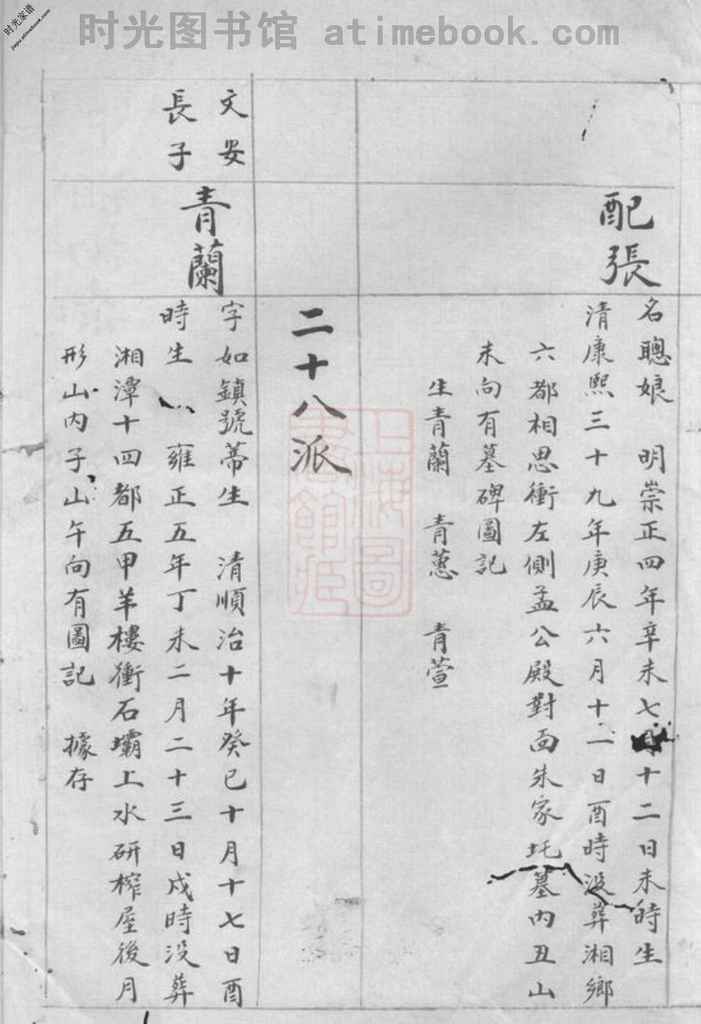 时光图书馆 atimebook.com
时光家谱
配張
名聰娘　明崇正四年辛未七月十二日未時生
清康熙三十九年庚辰六月十一日酉時没葬湘鄉
六都相思衝左側孟公殿對面朱家圫墓内丑山
未向有墓碑圖記
生青蘭　青蕙　青萱
二十八派
文安
長子
青蘭
字如鎮號蒂生　清順治十年癸巳十月十七日酉
時生　雍正五年丁未二月二十三日戌時没葬
湘潭十四都五甲羊樓衝石壩上水研榨屋後月
形山内子山午向有圖記　據存